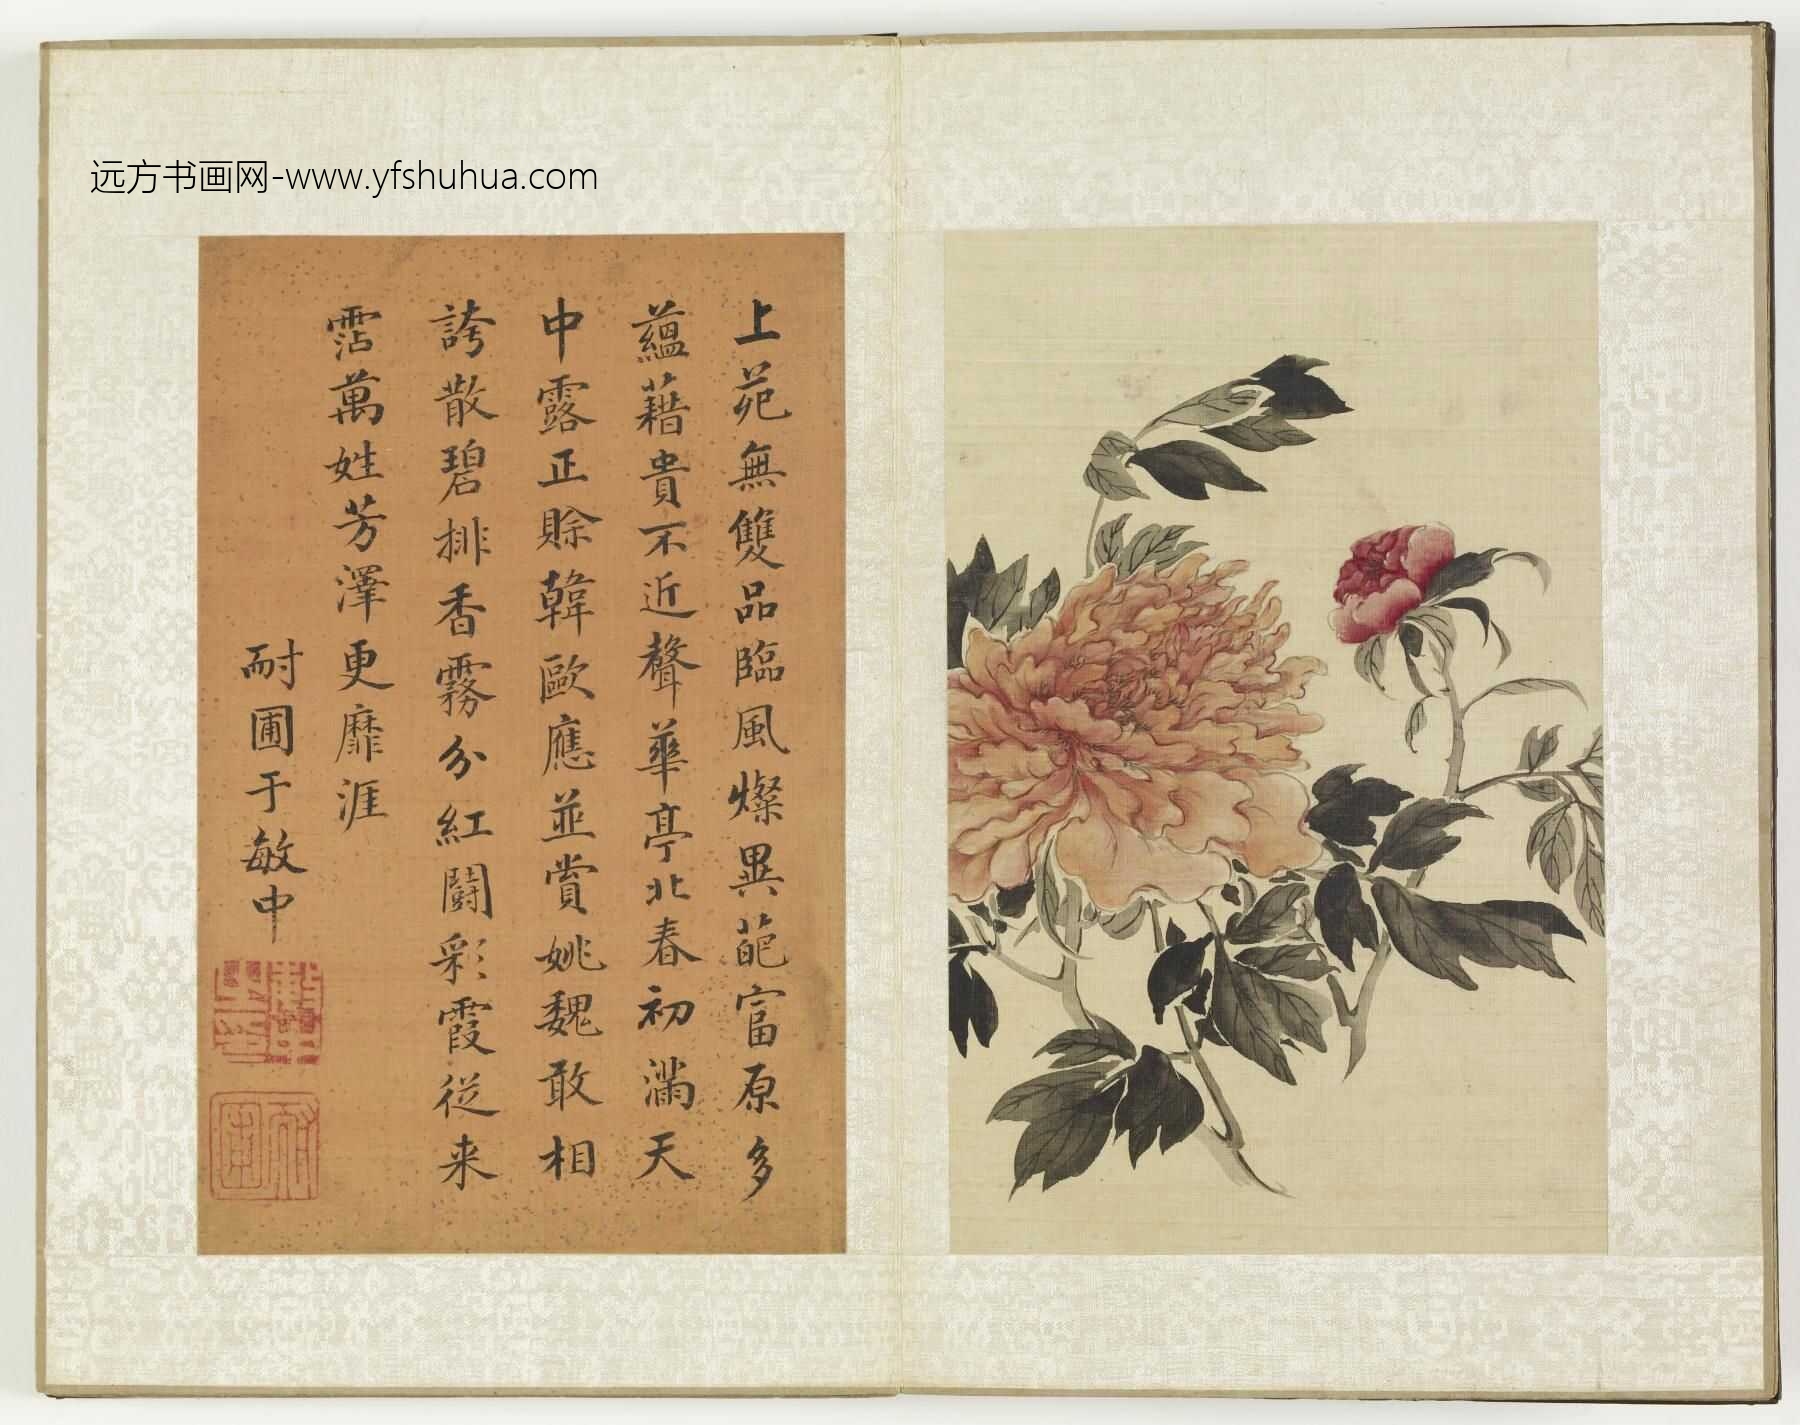 远方书画网-www.yfshuhua.com
上苑無雙品臨風燦異葩富原多
蘊藉貴不近聲華亭北春初滿天
中露正賒韓歐應並賞姚魏敢相
誇散碧排香霧分紅鬪彩霞從来
霑萬姓芳澤更靡涯
耐圃于敏中